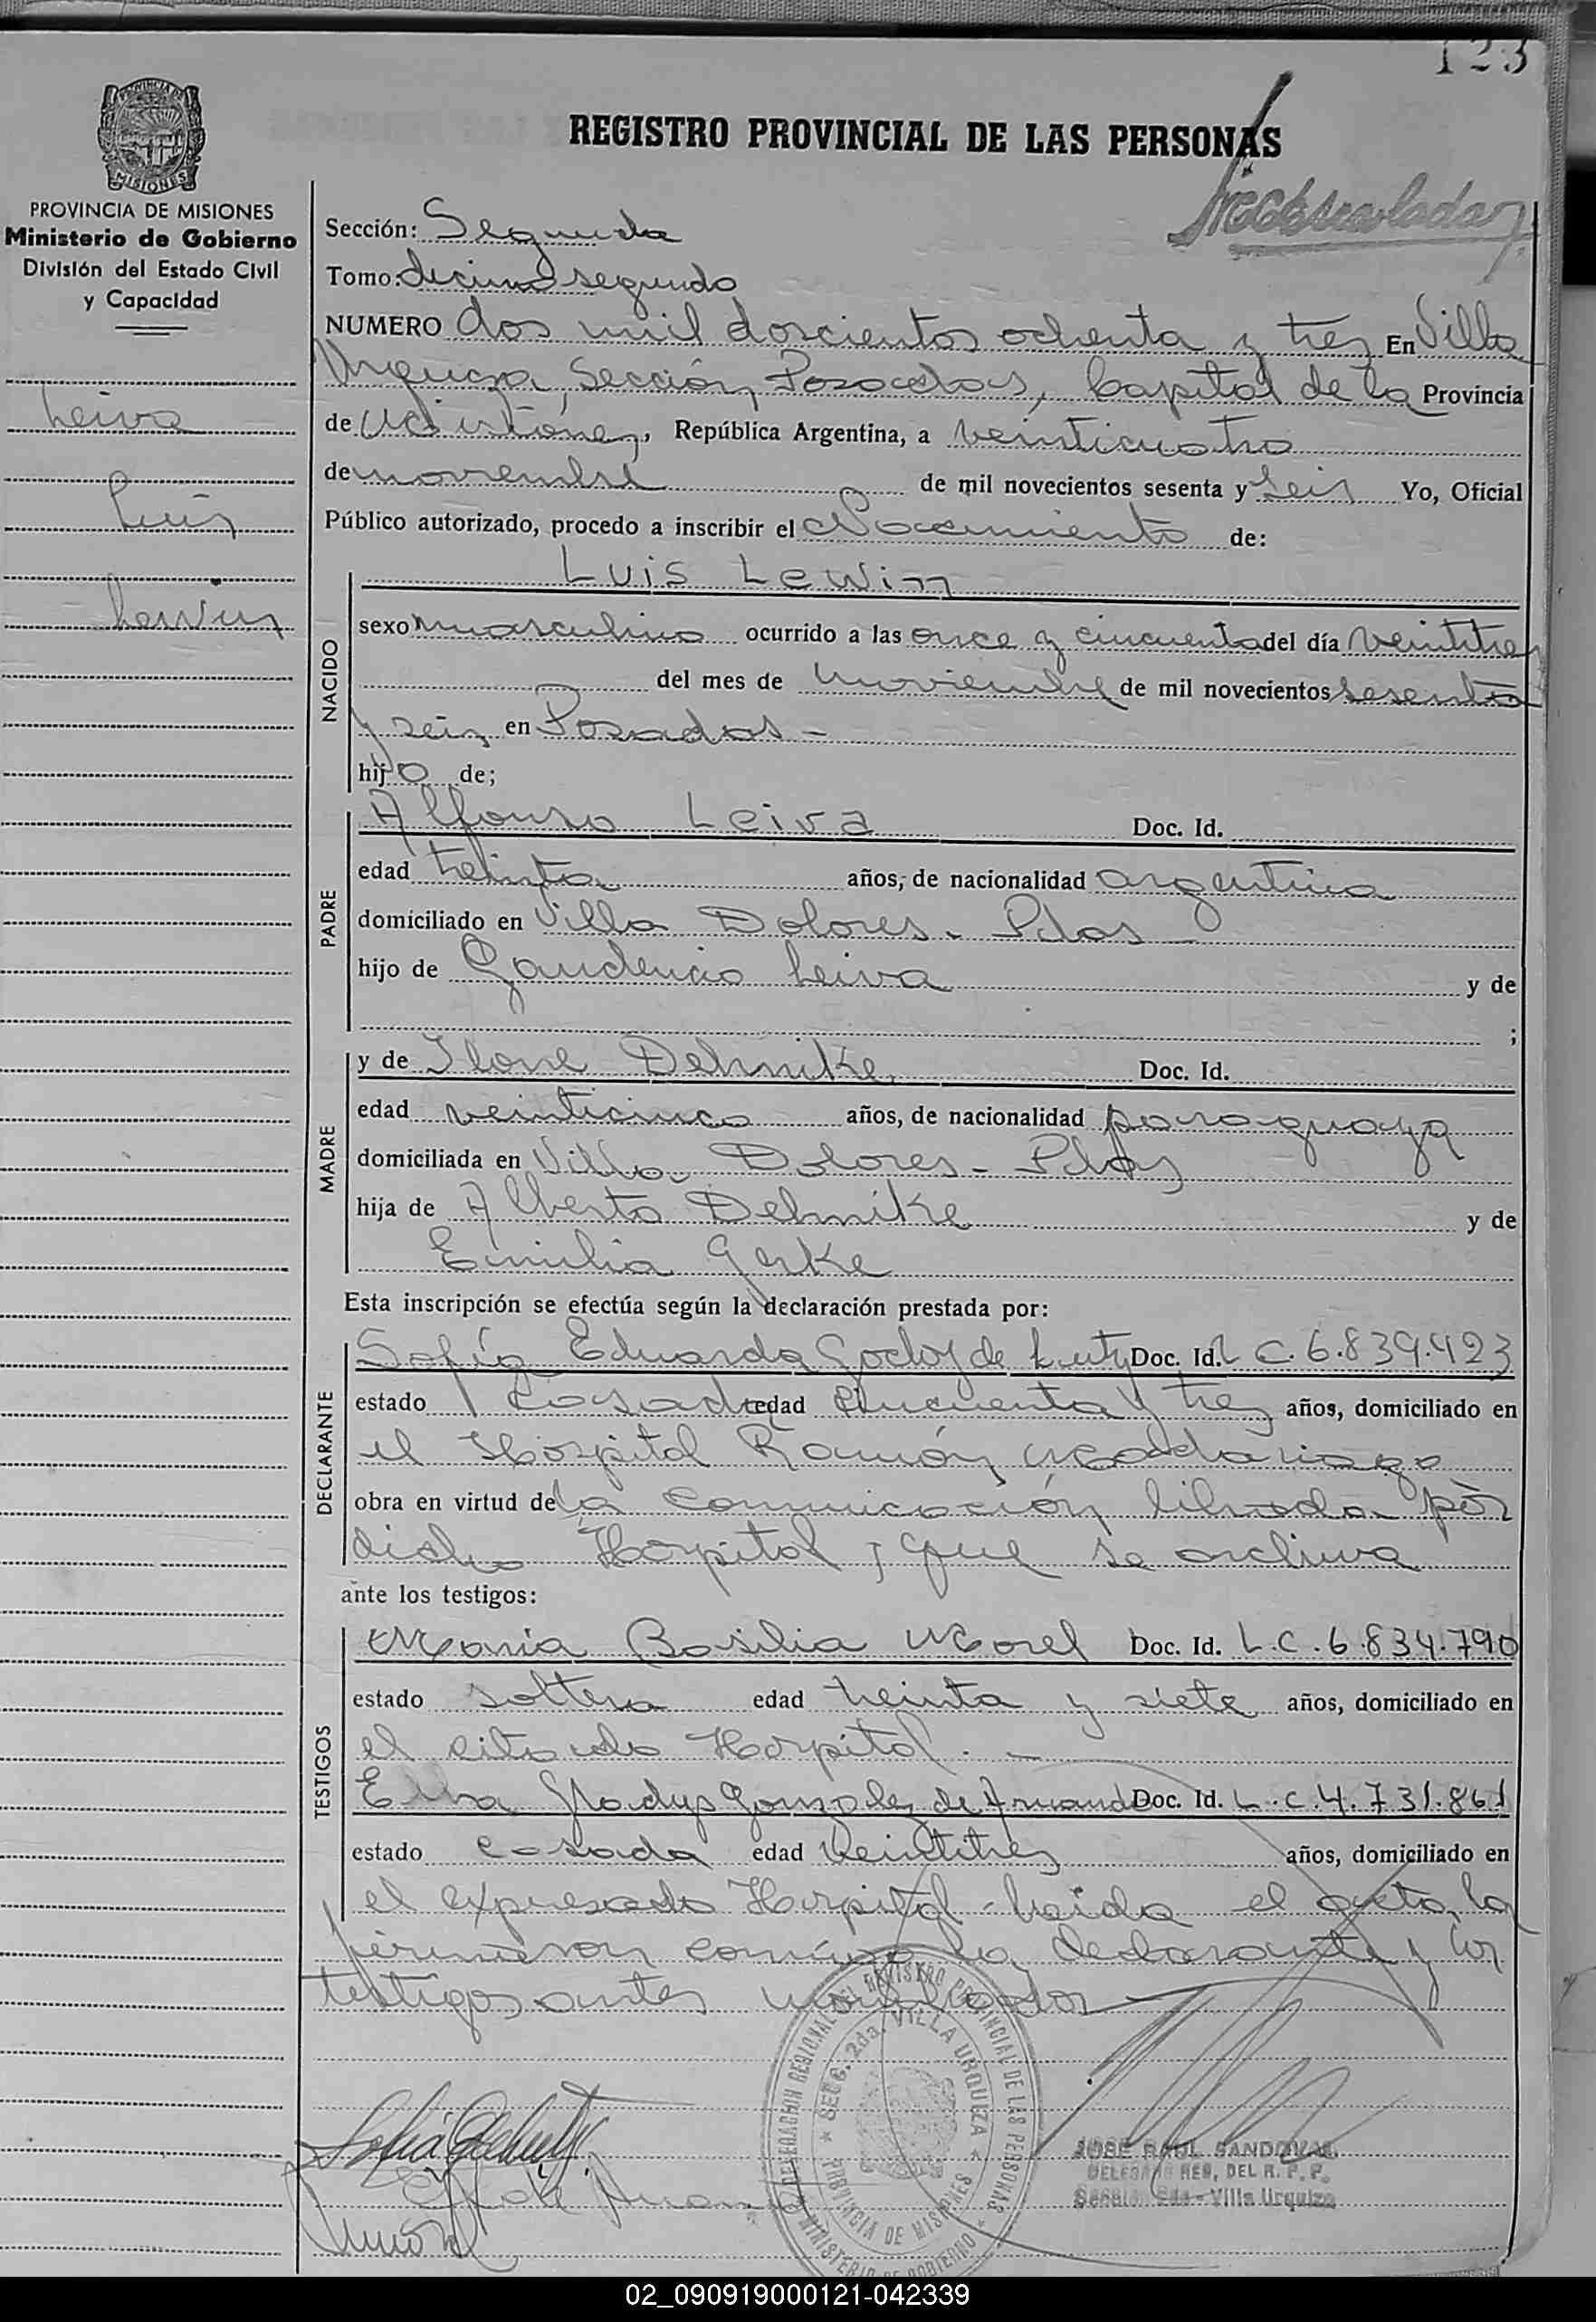 123
REGISTRO PROVINCIAL DE LAS PERSONAS
MISIONES
PROVINCIA DE MISIONES
Ministerio de Gobierno
División del Estado Civil
y Capacidad
Leiva
Luis
Lewin
Sección: Segunda
Tomo: decimo segundo
NUMERO dos mil doscientos ochenta y tres En Villa
Urquiza, Sección Posadas, Capital de la Provincia
de Misiones, República Argentina, a veinticuatro
de noviembre de mil novecientos sesenta y seis Yo, Oficial
Público autorizado, procedo a inscribir el Nacimiento de:
NACIDO
Luis Lewin
sexo masculino ocurrido a las once y cincuenta del día veintitres
del mes de noviembre de mil novecientos sesenta
y seis en Posadas -
hijo de;
PADRE
Alfonso Leiva Doc. Id.
edad treinta años, de nacionalidad argentina
domiciliado en Villa Dolores - Pdas -
hijo de Gaudencio Leiva y de
;
MADRE
y de Ilone Dehmike Doc. Id.
edad veinticinco años, de nacionalidad paraguaya
domiciliada en Villa Dolores - Pdas
hija de Alberto Dehmike y de
Emilia Gerke
Esta inscripción se efectúa según la declaración prestada por:
DECLARANTE
Sofía Eduarda Godoy de Doc. Id. L C. 6.839.423
estado casada edad cincuenta y tres años, domiciliado en
el Hospital Ramón Madariaga
obra en virtud de la comunicación librada por
dicho Hospital y que se archiva
ante los testigos:
TESTIGOS
María Basilia Morel Doc. Id. L.C. 6.834.790
estado soltera edad treinta y siete años, domiciliado en
el citado Hospital. -
Elba Gladys Gonzalez de Doc. Id. L.C. 4.731.861
estado casada edad veintitres años, domiciliado en
el expresado Hospital - Leida el acta, la
firmaron conmigo la declarante y los
testigos antes nombrados
DELEGACION REGIONAL DEL REGISTRO PROVINCIAL DE LAS PERSONAS
SECC. 2da. VILLA URQUIZA
PROVINCIA DE MISIONES
MINISTERIO DE GOBIERNO
JOSE RAUL SANDOVAL
DELEGADO REG. DEL R. P. P.
Sección 2da - Villa Urquiza
02_090919000121-042339